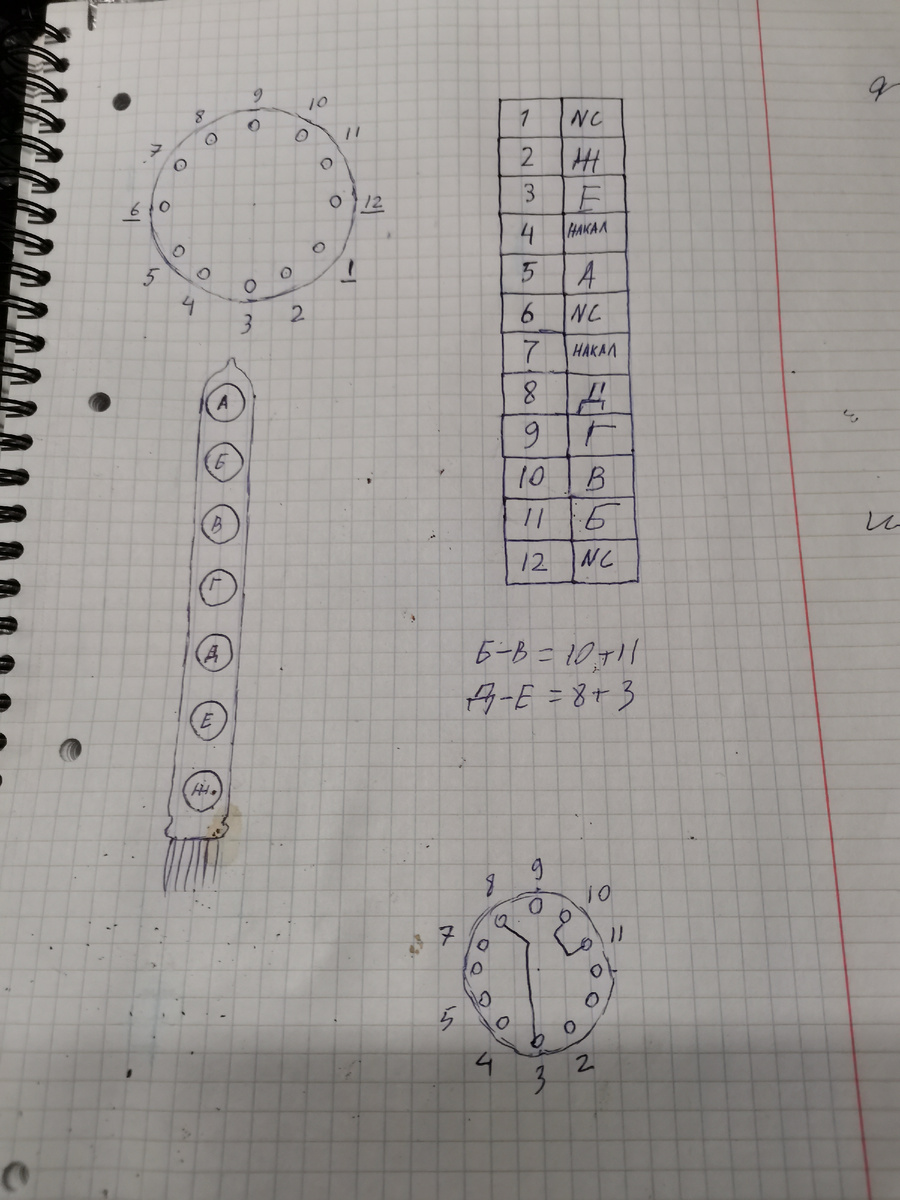 9
8 10
7 11
6 12
5 1
4 2
3
А
Б
В
Г
Д
Е
Ж
1 NC
2 Ж
3 Е
4 НАКАЛ
5 А
6 NC
7 НАКАЛ
8 Д
9 Г
10 В
11 Б
12 NC
Б-В = 10+11
Д-Е = 8+3
9
8 10
7 11
5
4 2
3